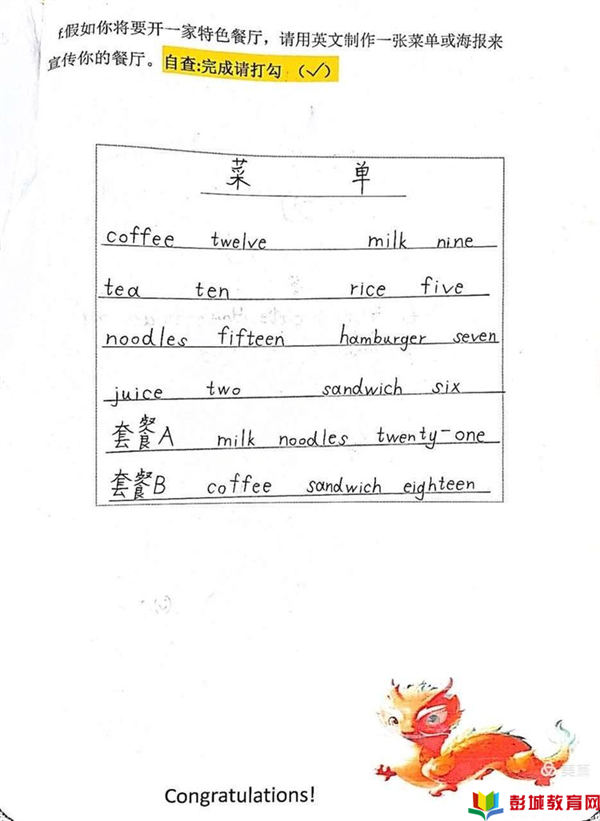 f.假如你将要开一家特色餐厅，请用英文制作一张菜单或海报来
宣传你的餐厅。自查:完成请打勾 （✓）
菜 单
coffee twelve milk nine
tea ten rice five
noodles fifteen hamburger seven
juice two sandwich six
套餐A milk noodles twenty-one
套餐B coffee sandwich eighteen
Congratulations!
美篇
彭城教育网